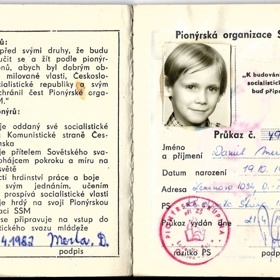 ů:
před svými druhy, že budu
učit se a žít podle pionýr-
onů, abych byl dobrým ob-
milované vlasti, Českoslo-
ocialistické republiky a svým
chránil čest Pionýrské orga-
M."
onýrů:
je oddaný své socialistické
Komunistické straně Čes-
nska
e přítelem Sovětského sva-
bhájcem pokroku a míru na
světě
í hrdinství práce a boje
svým jednáním, učením
prospívá socialistické vlasti
e hrdý na svoji Pionýrskou
aci SSM
se připravuje na vstup do
stického svazu mládeže
.4.1982
podpis
Pionýrská organizace S
"K budování
socialistick
buď přip
Průkaz č.
Jméno
a příjmení Daniel
Datum narození 19.10.
Adresa
PS
Průkaz vydán dne
razítko PS